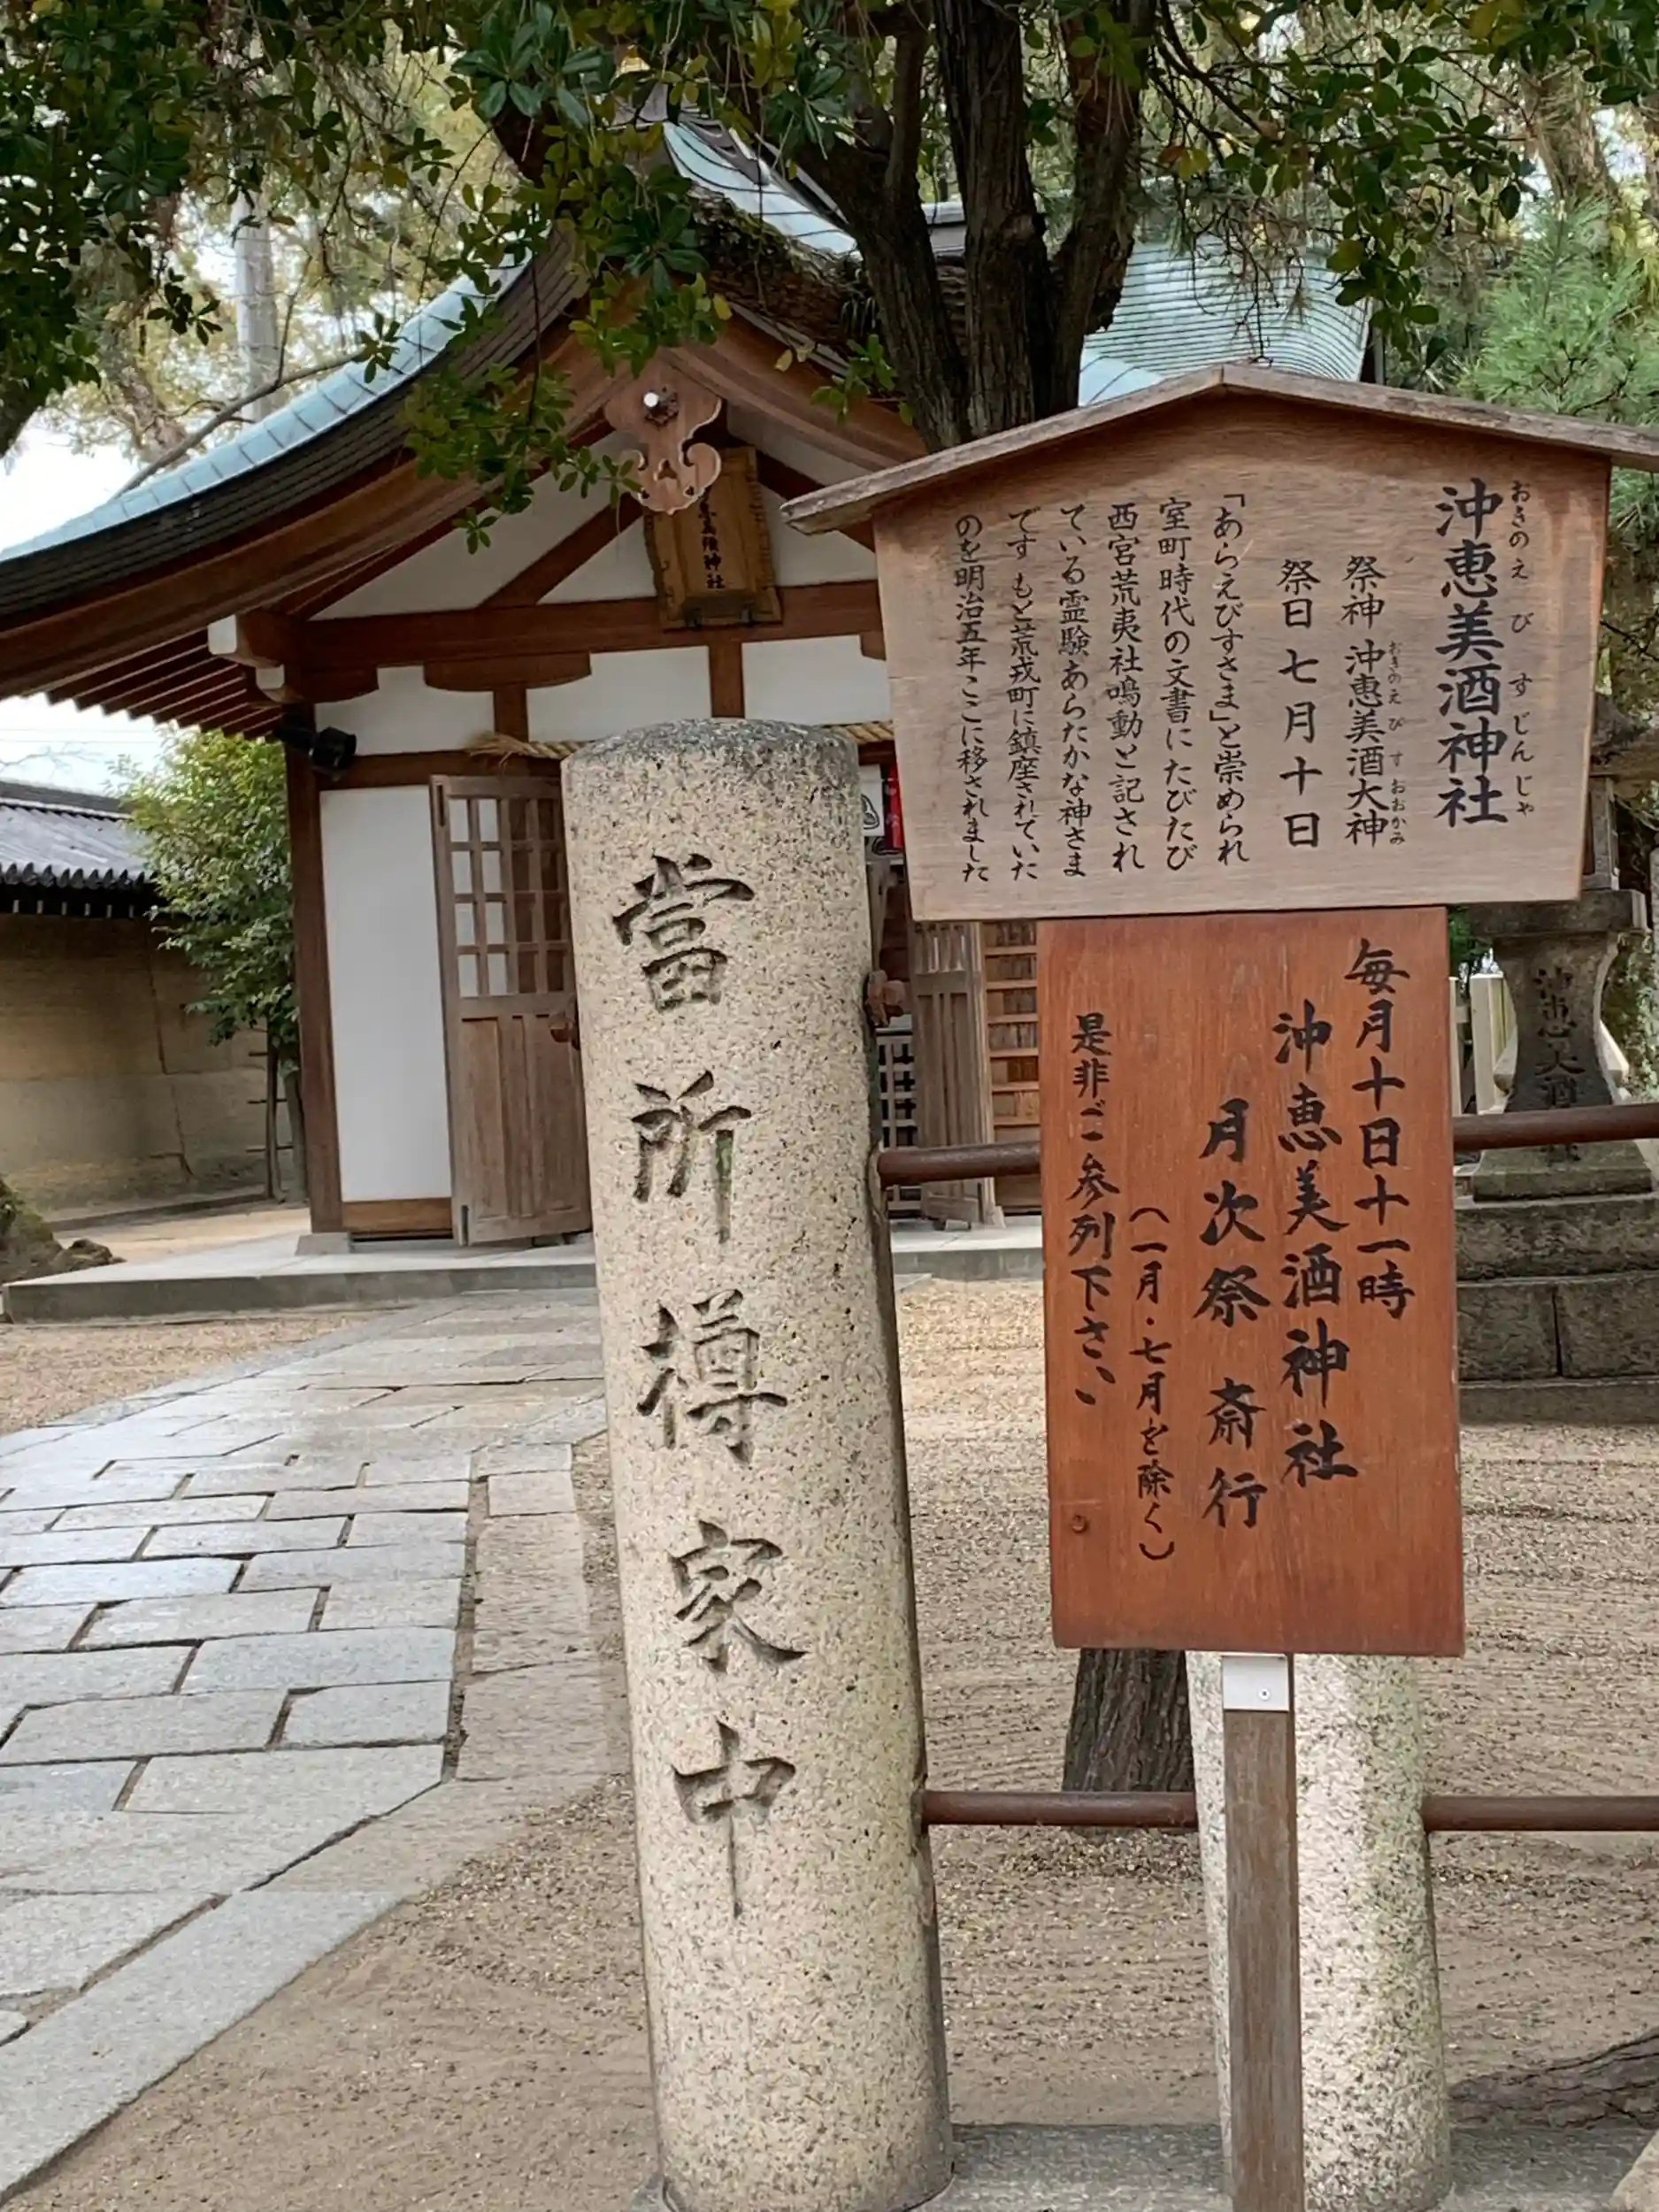 沖恵美酒神社
おきのえびすじんじゃ
祭神 沖恵美酒大神
おきのえびすおおかみ
祭日 七月十日
「あらえびすさま」と崇められ
室町時代の文書にたびたび
西宮荒夷社鳴動と記され
ている霊験あらたかな神さま
です もと荒戎町に鎮座されていた
のを明治五年ここに移されました
毎月十日十一時
沖恵美酒神社
月次祭 斎行
(一月・七月を除く)
是非ご参列下さい
當所樽家中
神社